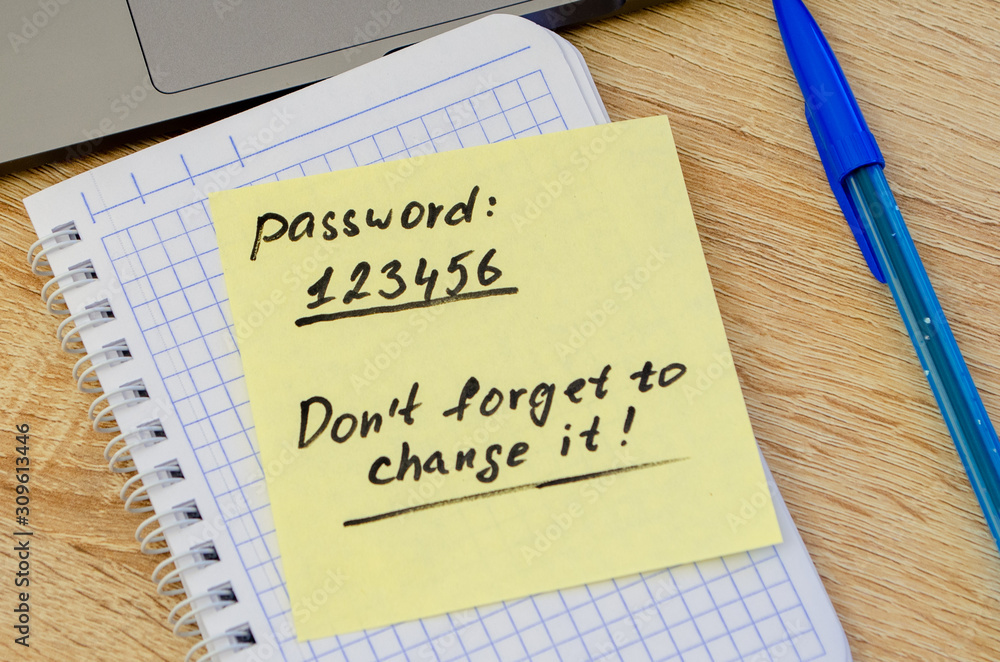 password:
123456
Don't forget to
change it!
Adobe Stock | #309613446